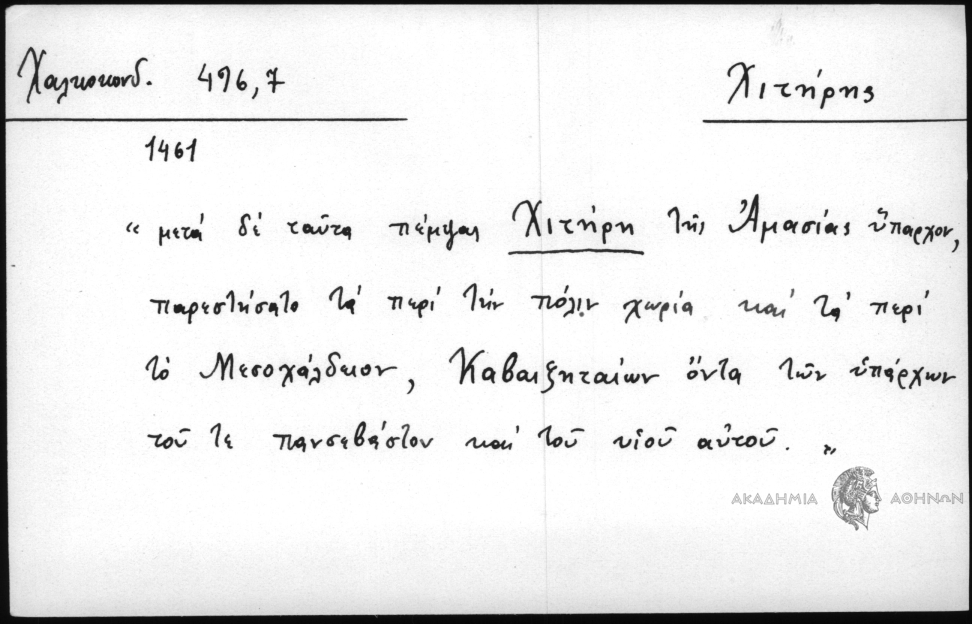 Χαλκοκονδ. 496,7
Χιτήρης
1461
“ μετά δέ ταῦτα πέμψας Χιτήρη τῆς Ἀμασίας ὕπαρχον,
παρεστήσατο τά περί τήν πόλιν χωρία καί τά περί
τό Μεσοχάλδειον, Καβαιξηταίων ὄντα τῶν ὑπάρχων
τοῦ τε πανσεβάστου καί τοῦ υἱοῦ αὐτοῦ. „
ΑΚΑΔΗΜΙΑ ΑΘΗΝΩΝ